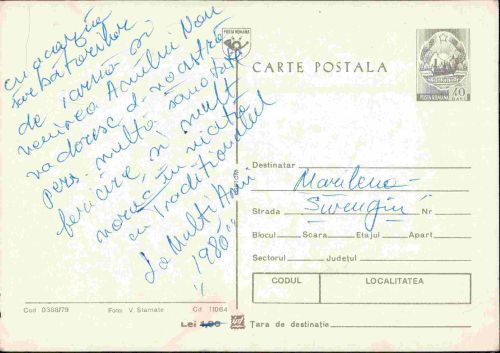 cu ocazia
sărbătorilor
de iarnă și
venirea Anului Nou
va doresc d-noastră
pers. multă sănătate
fericire, și mult
noroc în viață
cu Tradiționalul
La Mulți Ani
1980
POSTA ROMANA
CARTE POSTALA
POSTA ROMANA
40
BANI
Destinatar Marilena
Strada Nr
Blocul Scara Etajul Apart
Sectorul Județul
CODUL LOCALITATEA
Cod 0388/79 Foto: V. Stamate Cd. 11064
Lei 1,00 Țara de destinație